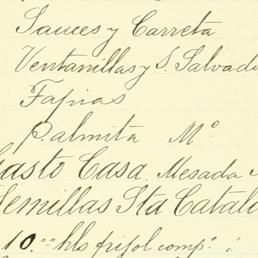 Sauces y Carreta
Ventanillas y S. Salvado
Tapias
Palmita Mº
Gasto Casa. Mesada
Semillas Sta Catali
10.⁰⁰ hls frijol comp.º á